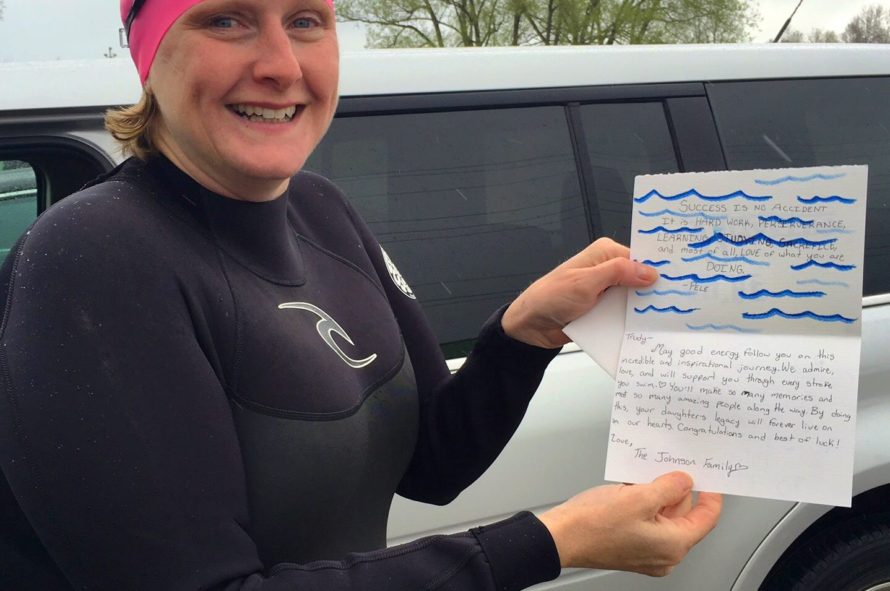 SUCCESS IS NO ACCIDENT
It is HARD WORK, PERSERVERANCE,
LEARNING, STUDYING, SACRIFICE,
and most of all, LOVE of what you are
DOING.
-PELE
Trudy-
May good energy follow you on this
incredible and inspirational journey. We admire,
love, and will support you through every stroke
you swim.♡ You'll make so many memories and
met so many amazing people along the way. By doing
this, your daughter's legacy will forever live on
in our hearts. Congratulations and best of luck!
Love,
The Johnson Family♡